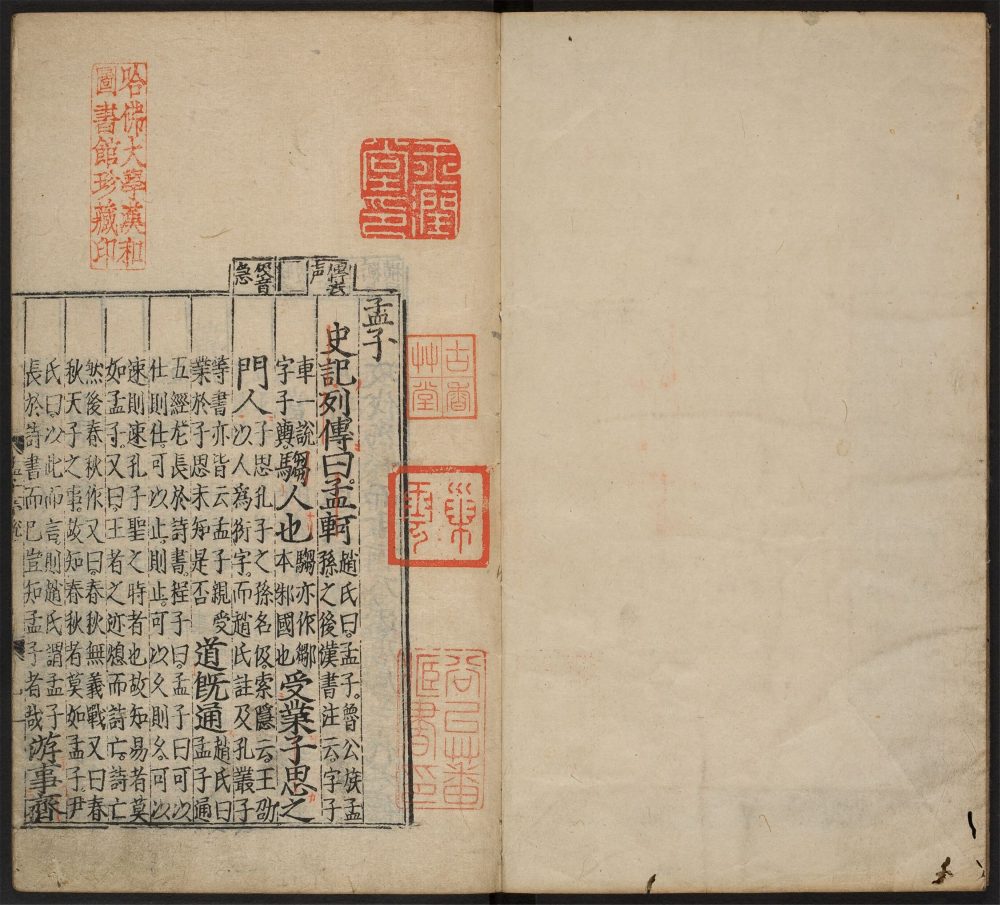 哈佛大學漢和
圖書館珍藏印
古香
艸堂
傳去
声
伋音
急
孟子
史記列傳曰。孟軻趙氏曰。孟子。魯公族孟孫。之後漢書注云。字子
車一說字子輿騶人也騶亦作鄒本邾國也受業子思之
門人子思孔子之孫名伋索隱云。王劭以人爲衍字。而趙氏註及孔叢子
等書亦皆云孟子親受業於子思未知是否道旣通趙氏曰孟子通
五經尤長於詩書。程子曰。孟子曰可以
仕則仕。可以止則止。可以久則久。可以
速則速孔子聖之時者也故知易者莫
如孟子。又曰。王者之迹熄而詩亡。詩亡
然後春秋作又曰。春秋無義戰又曰春
秋天子之事。故知春秋者莫如孟子。尹
氏曰。以此而言則趙氏謂孟子長於詩書而已豈知孟子者哉游事齊